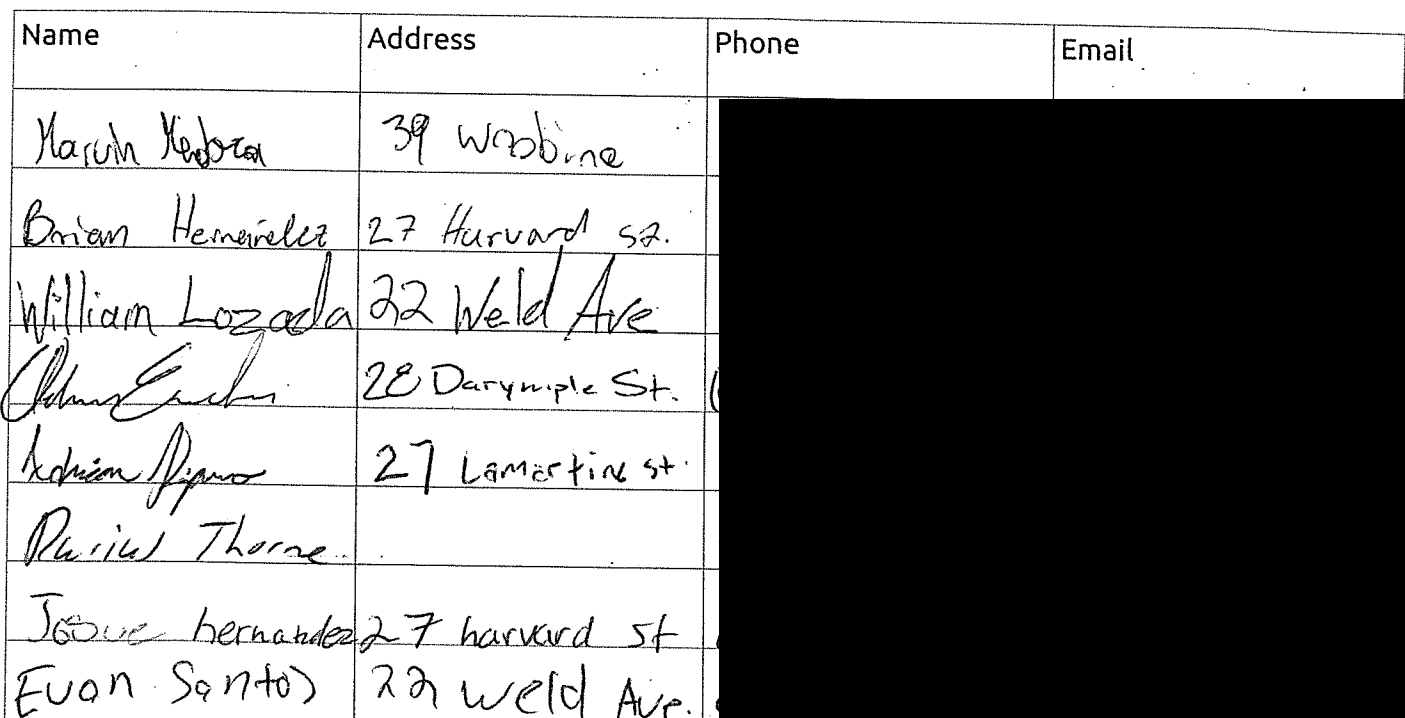 Name Address Phone Email
39
Brian Hernandez 27 Harvard st.
William Lozada 22 Weld Ave
28 Darymple St.
Adrian 27 Lamartine st.
Darius Thorne
Josue hernandez 27 harvard st
Evan Santos 22 Weld Ave.